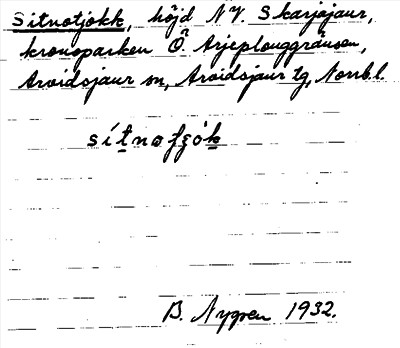 Sitnotjåkk, höjd NV. Skarjajaur,
kronoparken Ö. Arjeplouggränsen,
Arvidsjaur sn, Arvidsjaur tg, Norrb.l.
B. Nygren 1932.